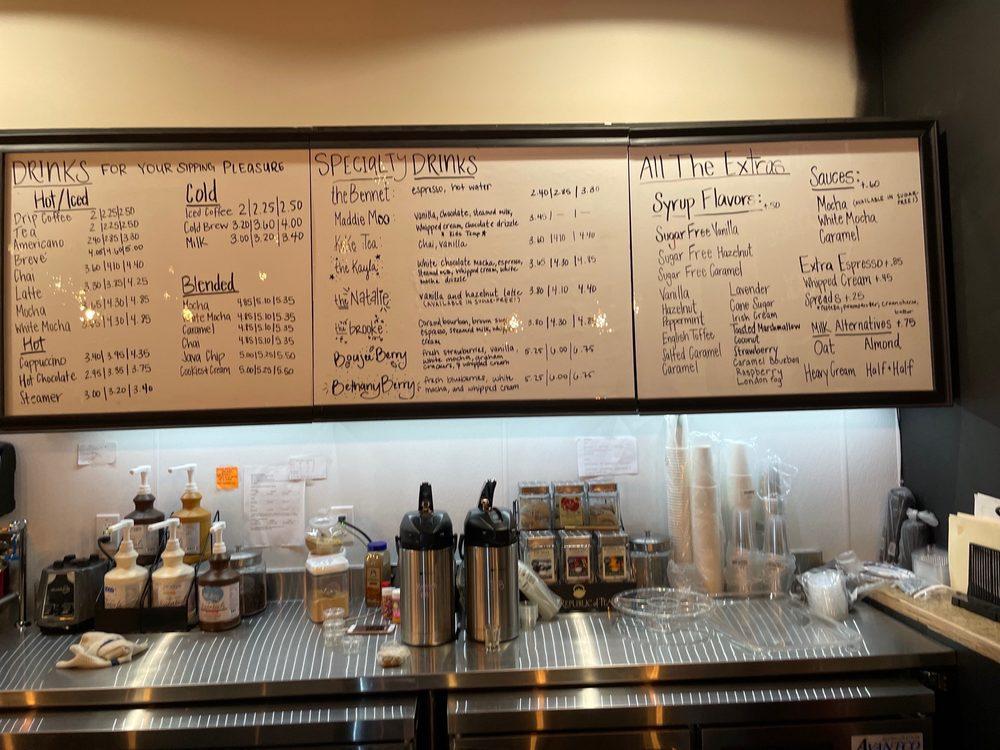 DRINKS FOR YOUR SIPPING PLEASURE
Hot/Iced
Drip Coffee 2|2.25|2.50
Tea 2|2.25|2.50
Americano 2.40|2.85|3.30
Breve
Chai 3.60|4.10|4.40
Latte 3.30|3.75|4.25
Mocha 3.65|4.30|4.85
White Mocha 3.65|4.30|4.85
Hot
Cappuccino 3.40|3.95|4.35
Hot Chocolate 2.95|3.55|3.75
Steamer 3.00|3.20|3.40
Cold
Iced Coffee 2|2.25|2.50
Cold Brew 3.20|3.60|4.00
Milk 3.00|3.20|3.40
Blended
Mocha 4.85|5.10|5.35
White Mocha 4.85|5.10|5.35
Caramel 4.85|5.10|5.35
Chai 4.85|5.10|5.35
Java Chip 5.00|5.25|5.50
Cookiest Cream 5.00|5.25|5.50
SPECIALTY DRINKS
the Bennet: espresso, hot water 2.40|2.85|3.30
Maddie Moo: vanilla, chocolate, steamed milk, 3.45|-|-
whipped cream, chocolate drizzle
* Kids Temp *
Tea: Chai, vanilla 3.60|4.10|4.40
the Kayla: White chocolate mocha, espresso, 3.65|4.30|4.85
steamed milk, whipped cream, white
mocha drizzle
the Natalie: vanilla and hazelnut latte 3.80|4.10|4.40
(AVAILABLE IN SUGAR-FREE!)
the brooke: Caramel bourbon, brown sugar,
espresso, steamed milk, whipped
cream
Boujee Berry fresh strawberries, vanilla, 5.25|6.00|6.75
white mocha, graham
crackers, & whipped cream
BethanyBerry: fresh blueberries, white 5.25|6.00|6.75
mocha, and whipped cream
All The Extras
Syrup Flavors: +.50
Sugar Free Vanilla
Sugar Free Hazelnut
Sugar Free Caramel
Vanilla
Hazelnut
Peppermint
English Toffee
Salted Caramel
Caramel
Lavender
Cane Sugar
Irish Cream
Toasted Marshmallow
Coconut
Strawberry
Caramel Bourbon
Raspberry
London Fog
Sauces: +.60
Mocha (AVAILABLE IN SUGAR-FREE!)
White Mocha
Caramel
Extra Espresso +.85
Whipped Cream +.45
Spreads +.25
Milk Alternatives +.75
Oat Almond
Heavy Cream Half+Half
REPUBLIC of TEA
AVANTCO